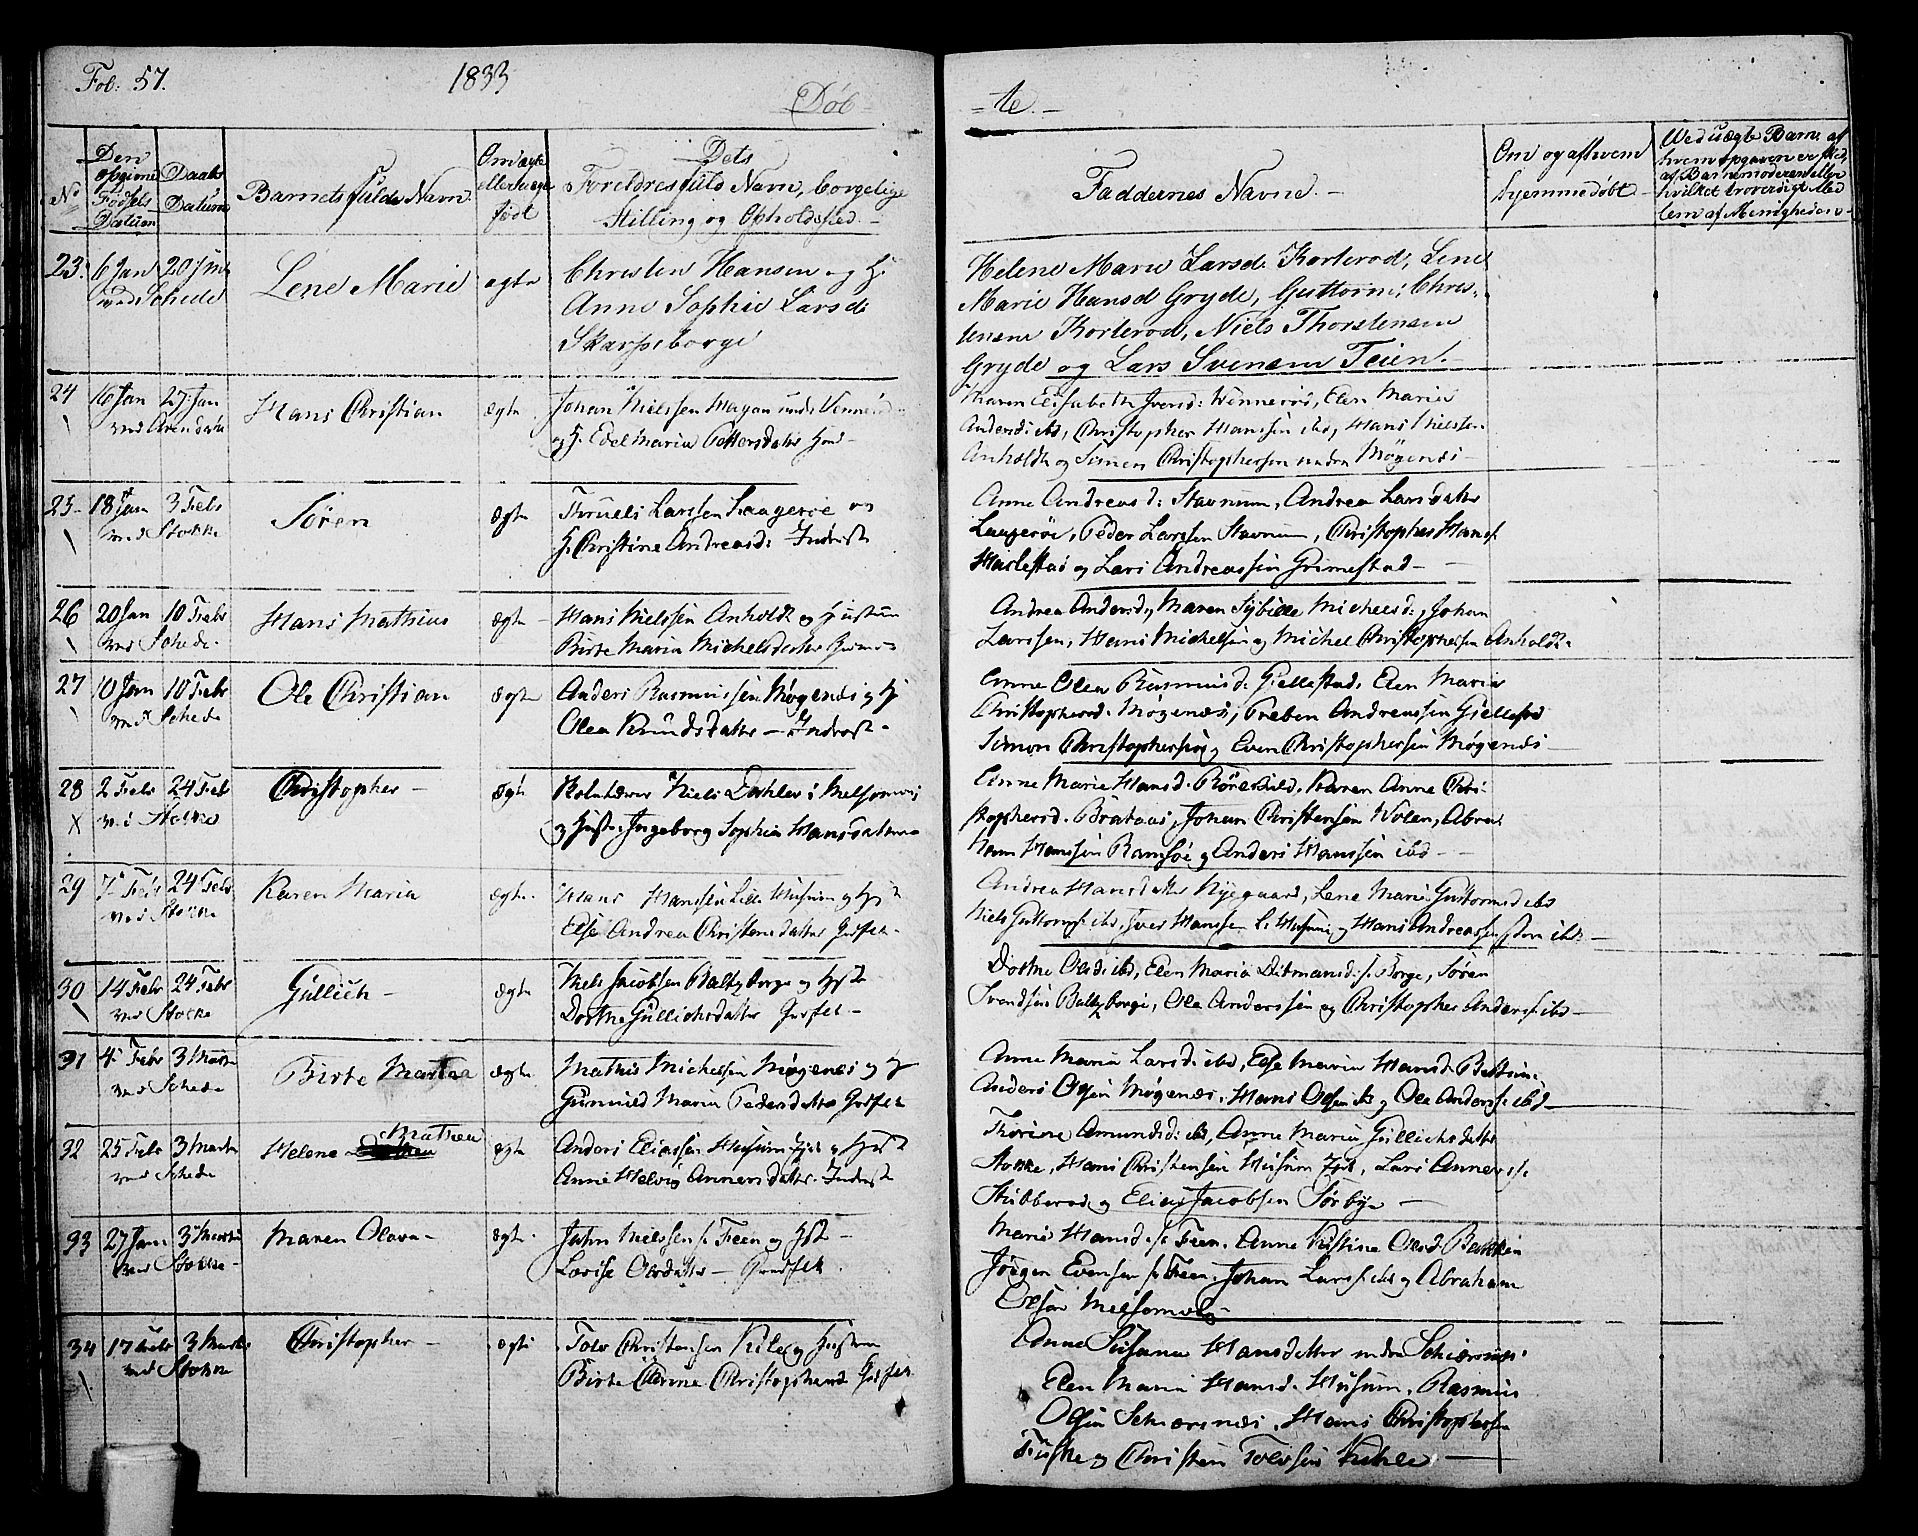 Fol: 57.
1833
Døb
=te.
No
Den opgivne Fødsels Datum
Daabs Datum
Barnets fulde Navn
Om ægte eller uægte født
Dets Foreldres fuld Navn, borgelige Stilling og Opholdsted.
Faddernes Navne.
Om og af hvem hjemmedøbt
Ved uægte Barns af hvem opgaven er sked, af Barnmoderen eller hvilket troverdigt Med lem af Menigheden
23. 6 Jan 20 Jan
ved Schede
Lene Marie
ægte
Christen Hansen og H:
Anne Sophie Larsd:
Skarpeborge
Helene Marie Larsd: Korterod, Lene
Marie Hansd Gryde, Guttorm Chris-
tensen Korterod, Niels Thorstensen
Gryde og Lars Svensen Teien.
24 16 Jan 27 Jan
ved Arendahl
Hans Christian
ægte
Johan Nielsen Hagan under Vennerød
og H. Edel Maria Pettersdatter
Maren Elisabeth Iversd: Vennerød, Elen Maria
Andersd: ibd, Christopher Hansen ibd, Hans Nielsen
Anholdt og Simen Christophersen nedre Møgenæs
25 18 Jan 3 Febr
ved Stokke
Sören
ægte
Thruels Larsen Laagerøe og
H. Christine Andreasd: Inderst
Anne Andreasd: Stavnum, Andrea Larsdatter
Laagerøe, Peder Larssen Stavnum, Christopher Hans
Harlestad og Lars Andreassen Grimestad
26 20 Jan 10 Febr
ved Schede
Hans Mathias
ægte
Hans Nielssen Anholdt og Hustru
Birte Maria Michelsdatter
Andrea Andersd:, Maren Sybille Michelsd:, Johan
Larssen, Hans Michelsen og Michel Christophersen Anholdt
27 10 Jan 10 Febr
ved Schede
Ole Christian
ægte
Anders Rasmussen Møgenæs og H
Olea Knudsdatter Inderst
Anne Olea Rasmusd: Giellestad, Elen Maria
Christophersd. Møgenæs, Preben Andreassen Giellestad
Simon Christophersen og Even Christophersen Møgenæs
28 2 Febr 24 Febr
ved Stokke
Christopher
ægte
Niels Dahler i Melsomvig
og Hust: Ingeborg Sophia Hansdatter
Anne Marie Hansd. Karen Anne Chri
stophersd. Brataas, Johan Christensen Wolen, Abra
ham Hanssen Ramsøe og Anders Hanssen ibd
29 7 Febr 24 Febr
ved Stokke
Karen Maria
ægte
Hans Hanssen Lille Husum og Hst
Else Andrea Christensdatter Husfolk
Andrea Hansdatter Nygaard, Lene Marie Guttormsd ibd
Niels Guttorms: ibd, Iver Hansen L: Husum og Hans Andreassen store ibd
30 14 Febr 24 Febr
ved Stokke
Gullich
ægte
Niels Jacobsen Baltzborge og Hst
Dorthe Gullichsdatter Husfolk
Dorthe Olsd: ibd, Elen Maria Ditmansd: s: Borge, Søren
Svendsen Baltzborge, Ole Anderssen og Christopher Anders: ibd
31 4 Febr 3 Marts
ved Schede
Birte Marthea
ægte
Mathis Michelsen Møgenæs og H
Gunnild Maria Pedersdatter Husfolk
Anne Maria Larsd: ibd, Else Maria Hansd.
Anders Olsen Møgenæs, Hans Olsen ibd og Ole Anders: ibd
32 25 Febr 3 Marts
ved Schede
Helene Mathea
ægte
Anders Eliassen Husum og Hst
Anne Helvig Annersdatter. Inderst
Thorine Amundsd: ibd, Anne Maria Gullichsdatter
Stokke, Hans Christensen Husum, Lars Anners:
Stubberød og Elias Jacobsen Sørbye
33 27 Jan 3 Marts
ved Stokke
Maren Olava
ægte
John Nielssen s: Feen og Hst
Lovise Olsdatter Husfolk
Maria Hansd: s: Feen, Anne Kirstine Olsd Bakken
Jörgen Evensen s: Feen, Johan Lars: ibd og Abraham
Olsen Melsomvig
34 17 Febr 3 Marts
ved Stokke
Christopher
ægte
Tolv Christensen Kile og Hustru
Birte Christophersd Husfolk
Anne Susanne Hansdatter nedre Schiærsnæs
Elen Maria Hansd. Husum, Rasmus
Olsen Schærsnæs, Hans Christophersen
Fuske og Christen Tolvssen Kihle